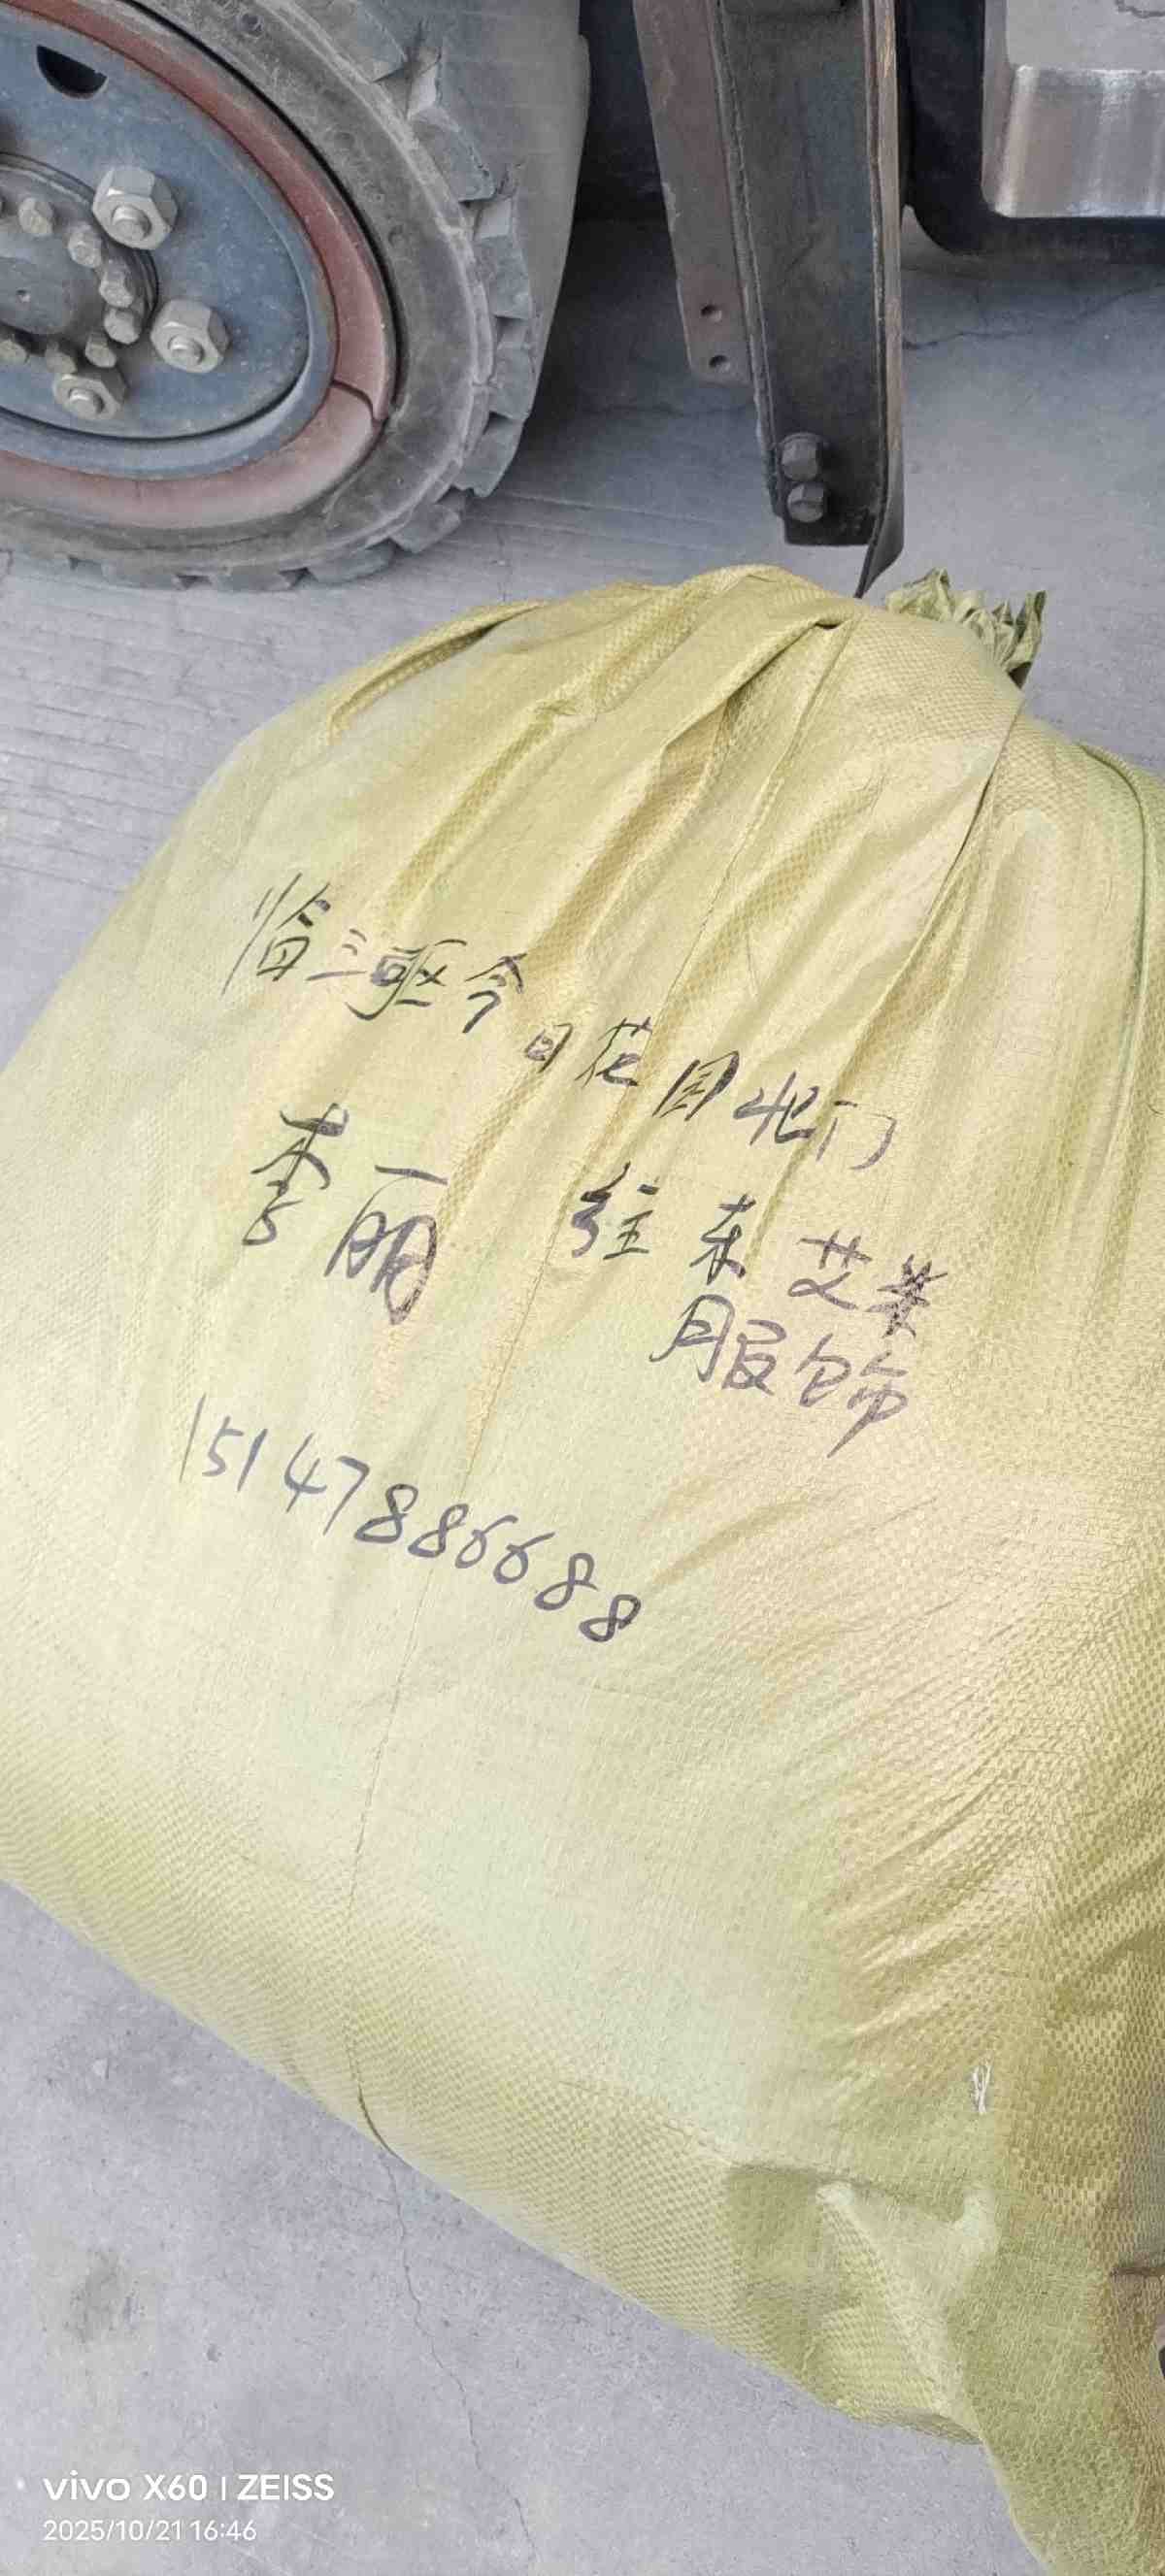 临三驱今日花园北门
李丽 往东艾美
服饰
15147886688
vivo X60 | ZEISS
2025/10/21 16:46